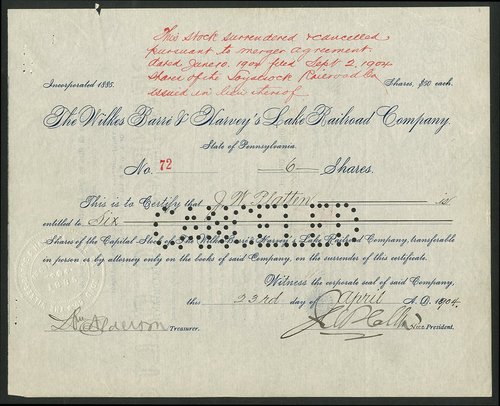 This stock surrendered & cancelled
pursuant to merger agreement
dated June 10. 1904 filed Sept 2, 1904
Shares of the Loyalsock Railroad Co
issued in lieu thereof
Incorporated 1885.
Shares, $50 each.
The Wilkes Barré & Harvey's Lake Railroad Company.
State of Pennsylvania.
No. 72
6 Shares.
This is to Certify that J W Platten is
entitled to Six
CANCELLED
Shares of the Capital Stock of The Wilkes Barré & Harvey's Lake Railroad Company, transferable
in person or by attorney only on the books of said Company, on the surrender of this certificate.
Witness the corporate seal of said Company,
this 23rd day of April A. D. 1904.
Wm Alderson Treasurer.
J W Platten Vice President.